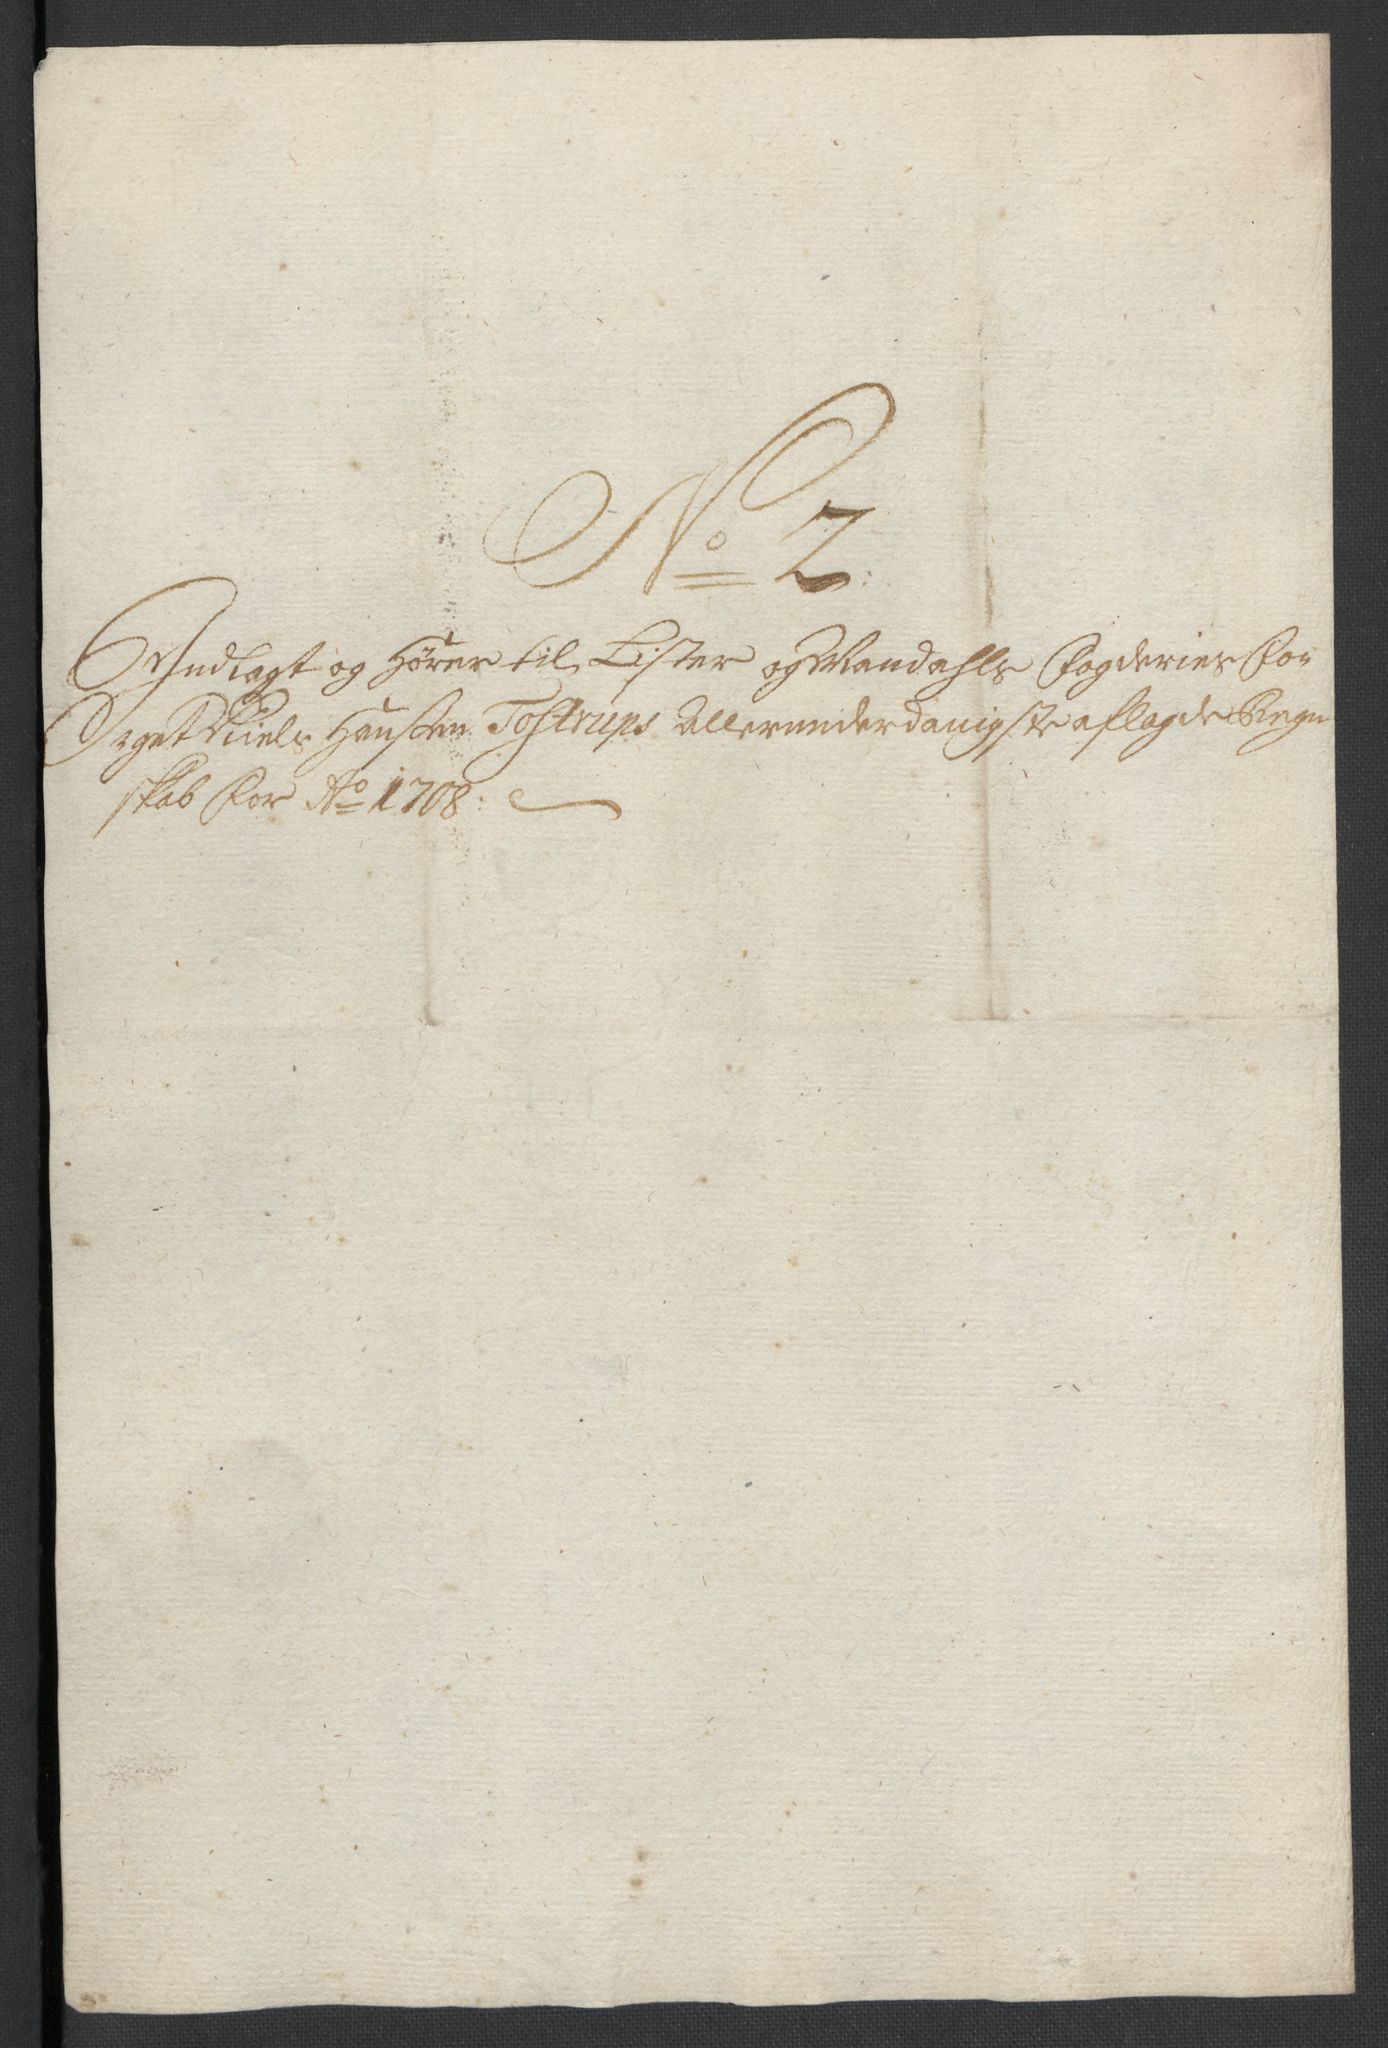 No 2
Indlagt og hører til Lister og Mandahls fogderies for
Niels Hanssen Tostrups Allerunderdanigste aflagde Regn
skab for Ao 1708: